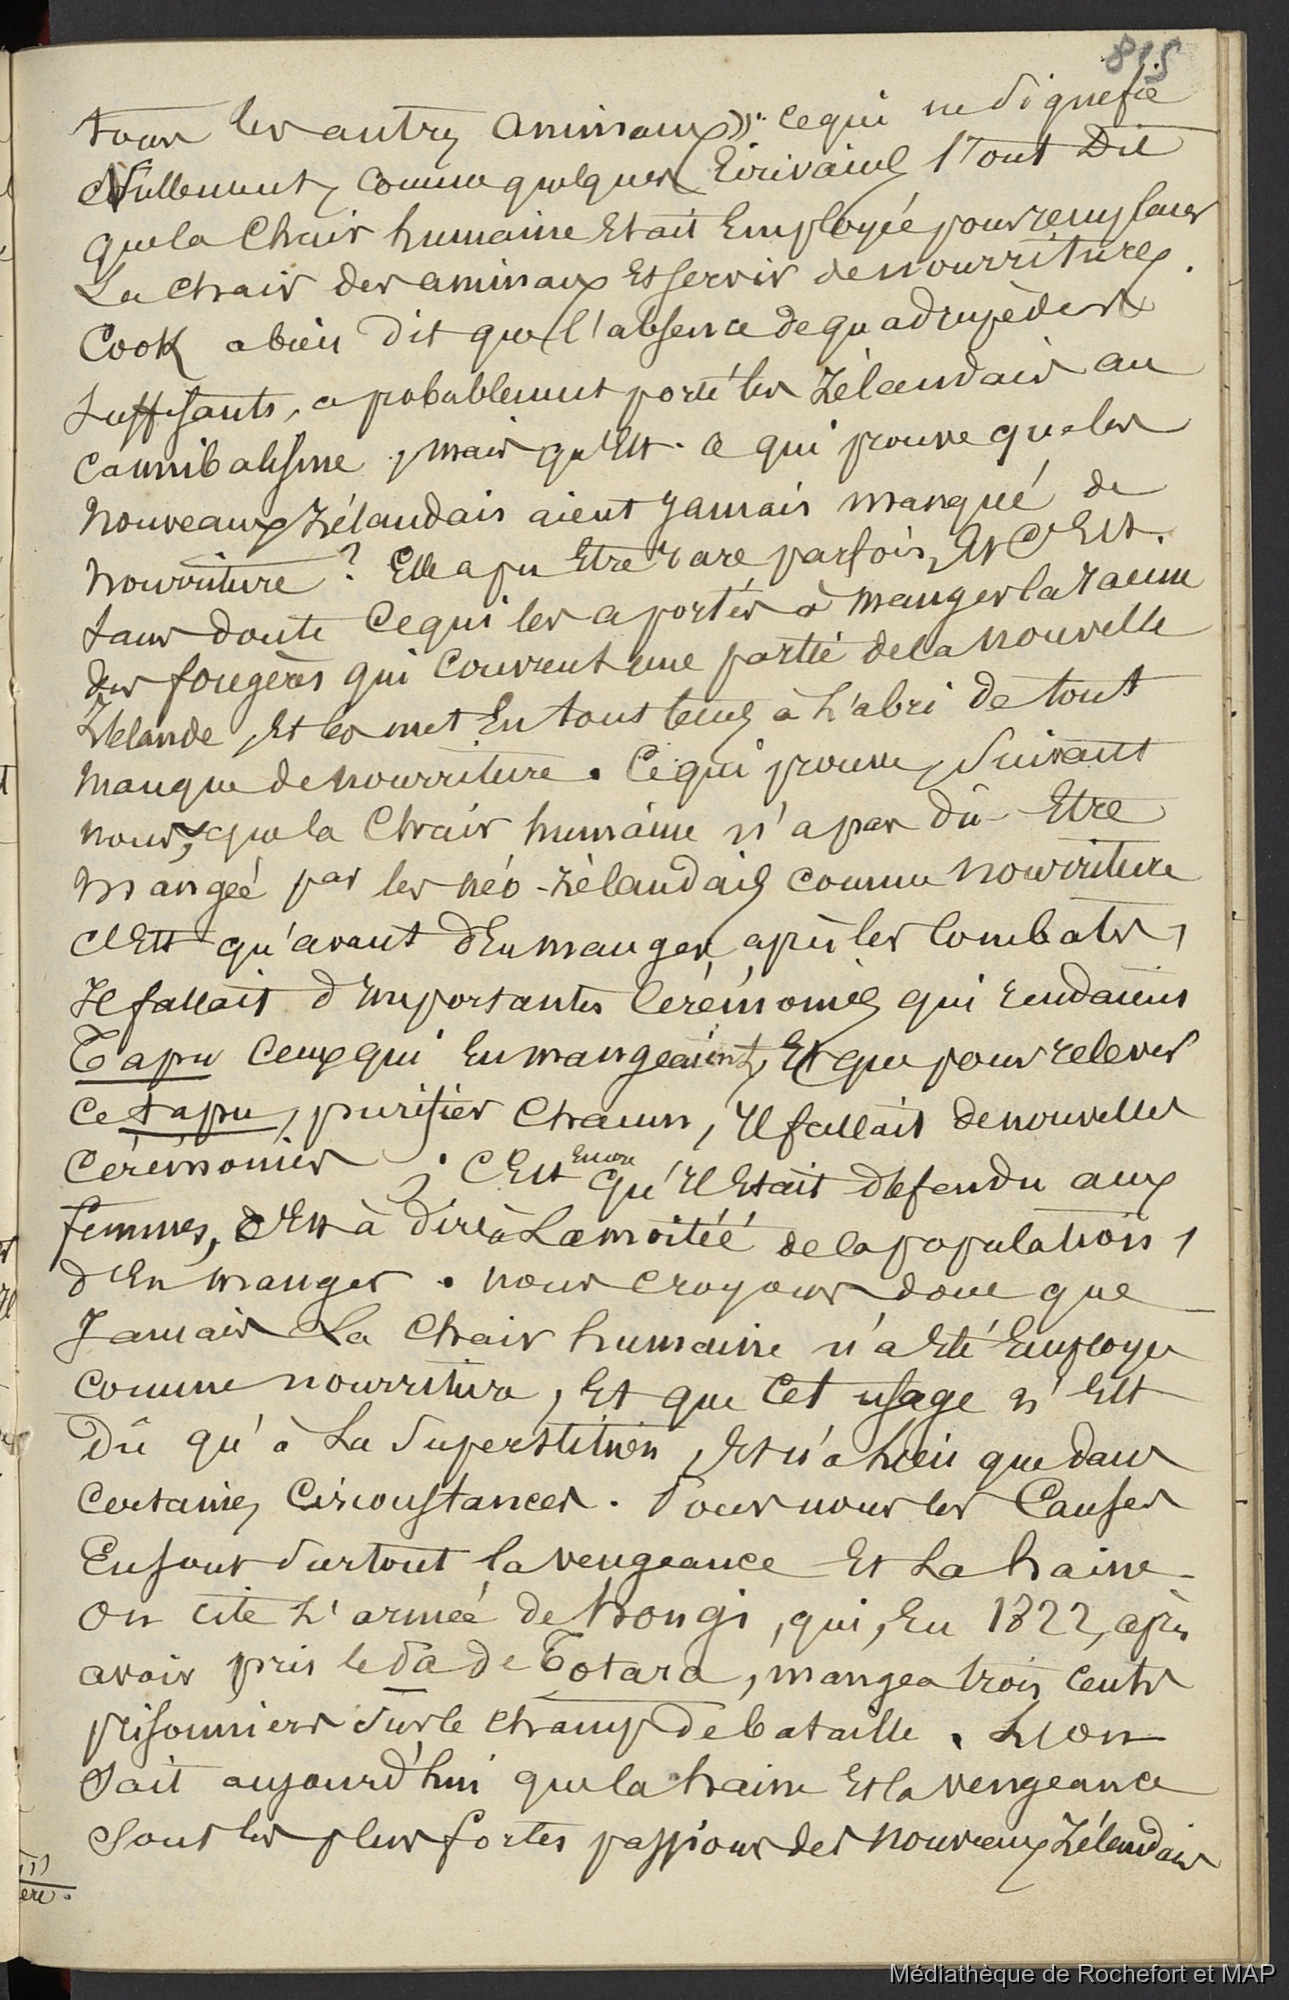 815
tous les autres animaux». Ce qui ne signifie
Nullement, comme quelques Ecrivains l'ont Dit
que la Chair humaine Etait Employée pour remplacer
La chair des animaux Et servir de nourriture.
Cook a bien dit que l'absence de quadrupèdes
suffisants, a probablement porté les Zélandais au
cannibalisme, mais qu'Est-ce qui prouve que les
nouveaux Zélandais aient Jamais manqué de
nourriture ? Elle a pu Etre rare parfois, Et C'Est
sans doute Ce qui les a portés à manger la racine
des fougères qui couvrent une partie de la nouvelle
Zélande, Et les met En tous tems à L'abri de tout
manque de nourriture. Ce qui prouve, Suivant
nous, que la Chair humaine n'a pas dû Etre
mangée par les néo-zélandais comme nourriture
C'Est qu'avant d'En manger, après les Combats,
Il fallait d'Importantes Cérémonies qui rendaient
Tapu Ceux qui En mangeaient, Et que pour relever
Ce tapu, purifier Chacun, Il fallait de nouvelles
Cérémonies ; C'Est Encore qu'Il Etait défendu aux
femmes, C'Est à dire à La moitié de la population,
d'En manger. Nous croyons donc que
Jamais La Chair humaine n'a Eté Employée
comme nourriture, Et que Cet usage n'Est
Dû qu'à La Superstition, Et n'a Lieu que dans
Certaines Circonstances. Pour nous les Causes
En sont surtout la vengeance Et La haine.
On cite L'armée de hongi, qui, En 1822, après
avoir pris le Pa de Totara, mangea trois Cents
prisonniers sur le champ de bataille. L'on
sait aujourd'hui que la haine Et la vengeance
sont les plus fortes passions des nouveaux Zélandais
ere.
Médiathèque de Rochefort et MAP